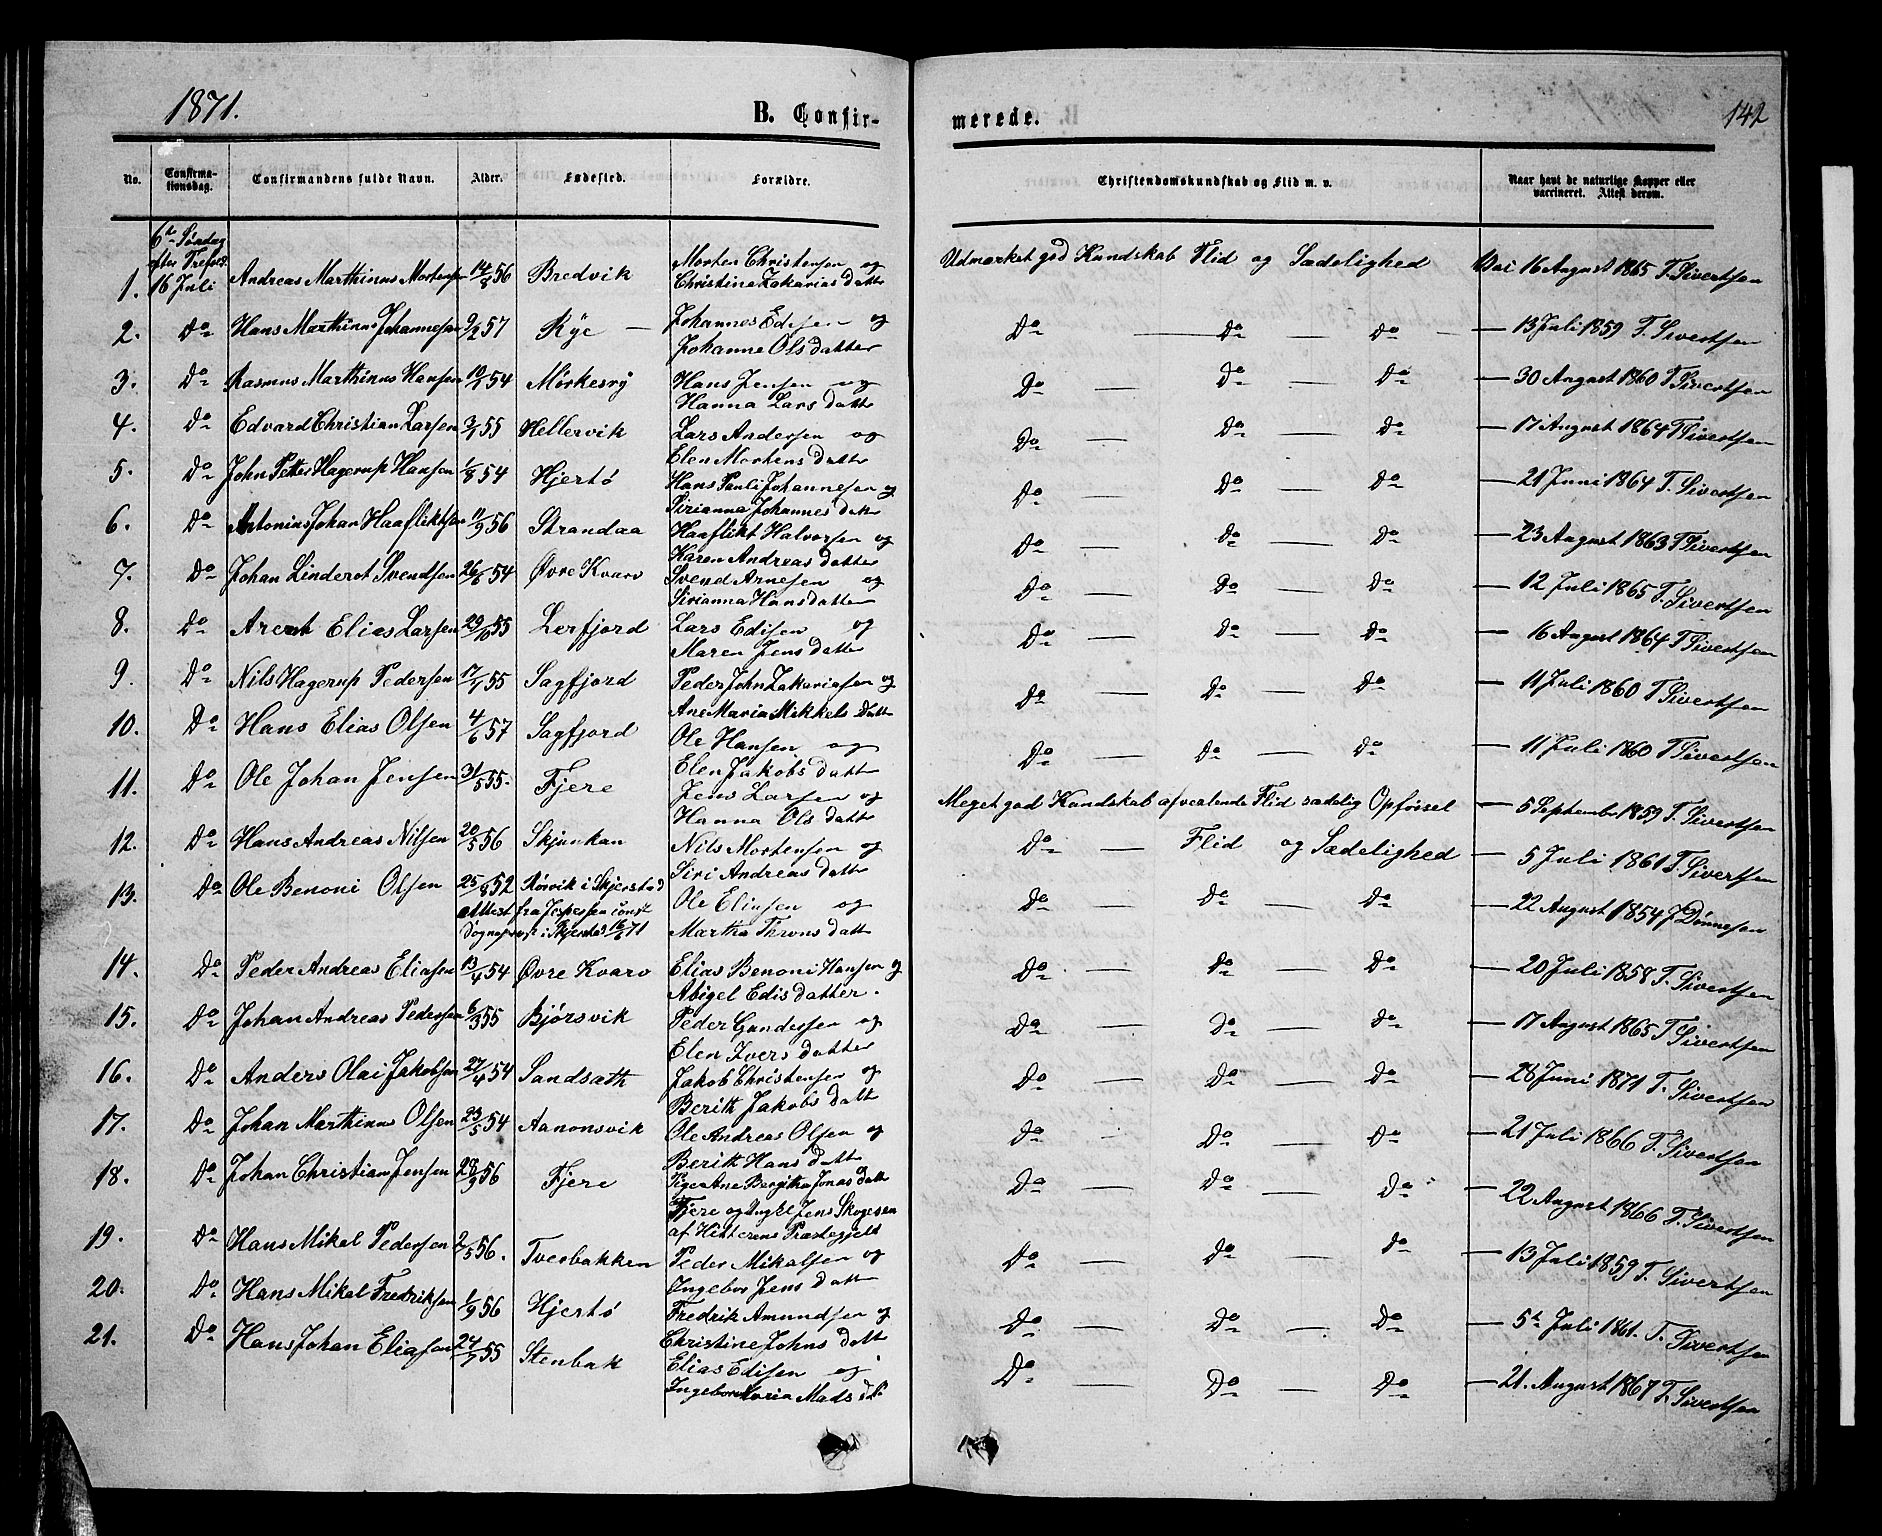 1871.
B. Confir-
merede.
142
No.
Confirma-
tionsdag.
Confirmandens fulde Navn.
Alder.
Fødested.
Forældre.
Christendomskundskab og Flid m. v.
Naar havt de naturlige Kopper eller
vaccineret. Attest derom.
6te Søndag
efter Trefold.
1. 16 Juli Andreas Marthinus Mortensen 56 Bredvik Morten Christensen og
Christine Zakarias datter
Udmærket god Kundskab Flid og Sædelighed 16 August 1865 T. Sivertsen
2. Do Hans Marthinus Johannesen 57 Kye — Johannes Edisen og
Johanne Ols datter
Do — Do — Do — 13 Juli 1859 T. Sivertsen
3. Do Rasmus Marthinus Hansen 54 Mørkesvy Hans Jensen og
Hanna Lars datt
Do — Do — Do — 30 August 1860 T. Sivertsen
4. Do Edvard Christian Larsen 55 Hellervik Lars Andersen og
Elen Mortens datt
Do — Do — Do — 17 August 1864 T. Sivertsen
5. Do John Petter Hagerup Hansen 1/8 54 Hjertø Hans Pauli Johannesen og
Sirianna Johannes datt
Do — Do — Do — 21 Juni 1864 T. Sivertsen
6. Do Antonius Johan Haafliktsen 11/9 56 Strandaa Haaflikt Halvorsen og
Karen Andreas datter
Do — Do — Do — 23 August 1863 T. Sivertsen
7. Do Johan Linderot Svendsen 26/6 54 Øvre Kvarv Svend Arnesen og
Sirianna Hans datter
Do — Do — Do — 12 Juli 1865 T. Sivertsen
8. Do Arent Elias Larsen 29/10 55 Lerfjord Lars Edisen og
Maren Jens datt
Do — Do — Do — 16 August 1864 T. Sivertsen
9. Do Nils Hagerup Pedersen 17/1 55 Sagfjord Peder John Zakariasen og
Ane Maria Mikkels datt
Do — Do — Do — 11 Juli 1860 T. Sivertsen
10. Do Hans Elias Olsen 4/6 57 Sagfjord Ole Hansen og
Elen Jakobs datt
Do — Do — Do — 11 Juli 1860 T. Sivertsen
11. Do Ole Johan Jensen 31/5 55. Fjere Jens Larsen og
Hanna Ols datt
Meget god Kundskab Flid sædelig Opførsel — 5 September 1859 T. Sivertsen
12. Do Hans Andreas Nilsen 20/5 56 Skjunkan Nils Mortensen og
Siri Andreas datt
Do — Flid og Sædelighed — 5 Juli 1861 T. Sivertsen
13. Do Ole Benoni Olsen 25/8 52 Rørvik i Skjerstad Ole Eliasen og
Attest fra Jespersen const
Sognepræst i Skjerstad 71 Martha Throns datt
Do — Do — Do — 22 August 1854 J. Dønnesen
14. Do Peder Andreas Eliasen 13/4 54 Øvre Kvarv Elias Benoni Hansen og
Abigel Edis datter.
Do — Do — Do — 20 Juli 1858 T. Sivertsen
15. Do Johan Andreas Pedersen 6/3 55 Bjørsvik Peder Gundersen og
Elen Ivers datter
Do — Do — Do — 17 August 1865 T. Sivertsen
16. Do Anders Olai Jakobsen 27/4 54 Sandsæth Jakob Christensen og
Berith Jakobs datt
Do — Do — Do — 28 Juni 1871 T. Sivertsen
17. Do Johan Marthinus Olsen 23/5 54 Aanonsvik Ole Andreas Olsen og
Berith Hans datt
Do — Do — Do — 21 Juli 1866 T. Sivertsen
18. Do Johan Christian Jensen 28/9 56 Fjere Pige Ane Bergitha Jonas datt
Fjere og Ungkl Jens Skogesen
af Hitterens Præstegjeld
Do — Do — Do — 22 August 1866 T. Sivertsen
19. Do Hans Mikal Pedersen 2/5 56. Tverbakken Peder Mikalsen og
Ingebor Jens datt
Do — Do — Do — 13 Juli 1859 T. Sivertsen
20. Do Hans Mikal Fredriksen 1/9 56 Hjertø Fredrik Amundsen og
Christine Johns datt
Do — Do — Do — 5te Juli 1861. T. Sivertsen
21. Do Hans Johan Eliasen 24/7 55 Stenbak Elias Edisen og
Ingebor Maria Mads dt
Do — Do — Do — 21. August 1867 T. Sivertsen